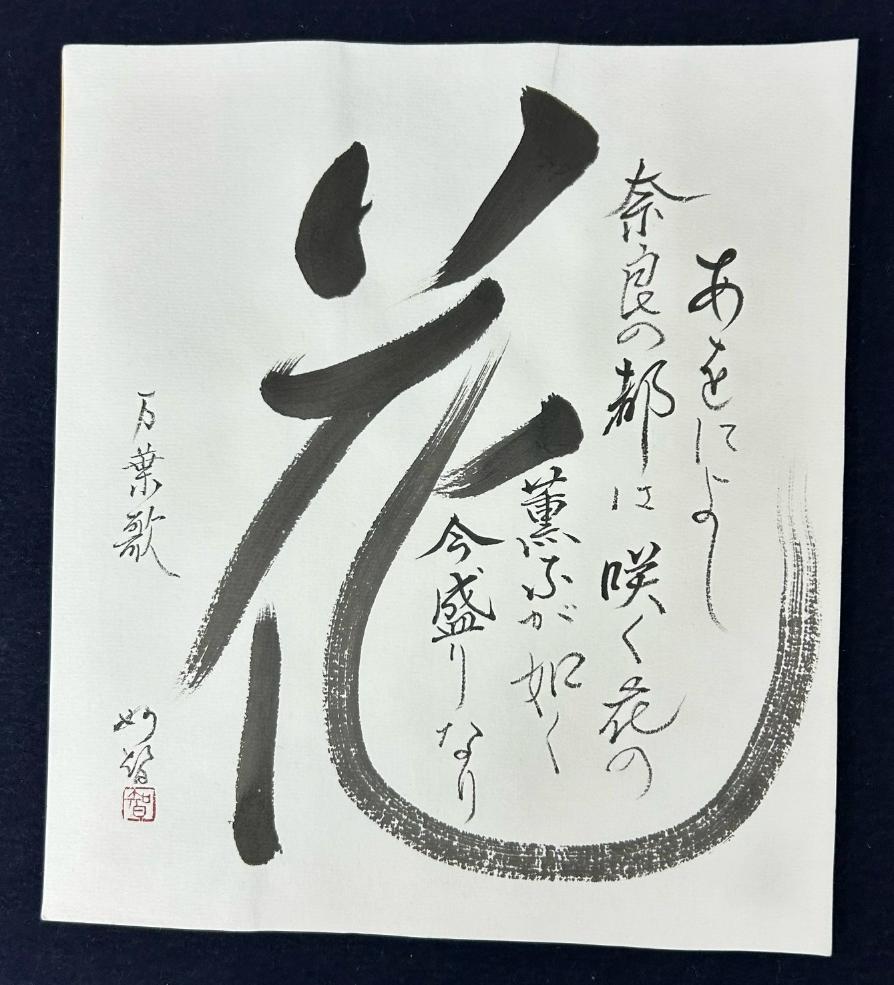 花
あをによし
奈良の都は咲く花の
薫ふが如く
今盛りなり
万葉歌
妙智
智